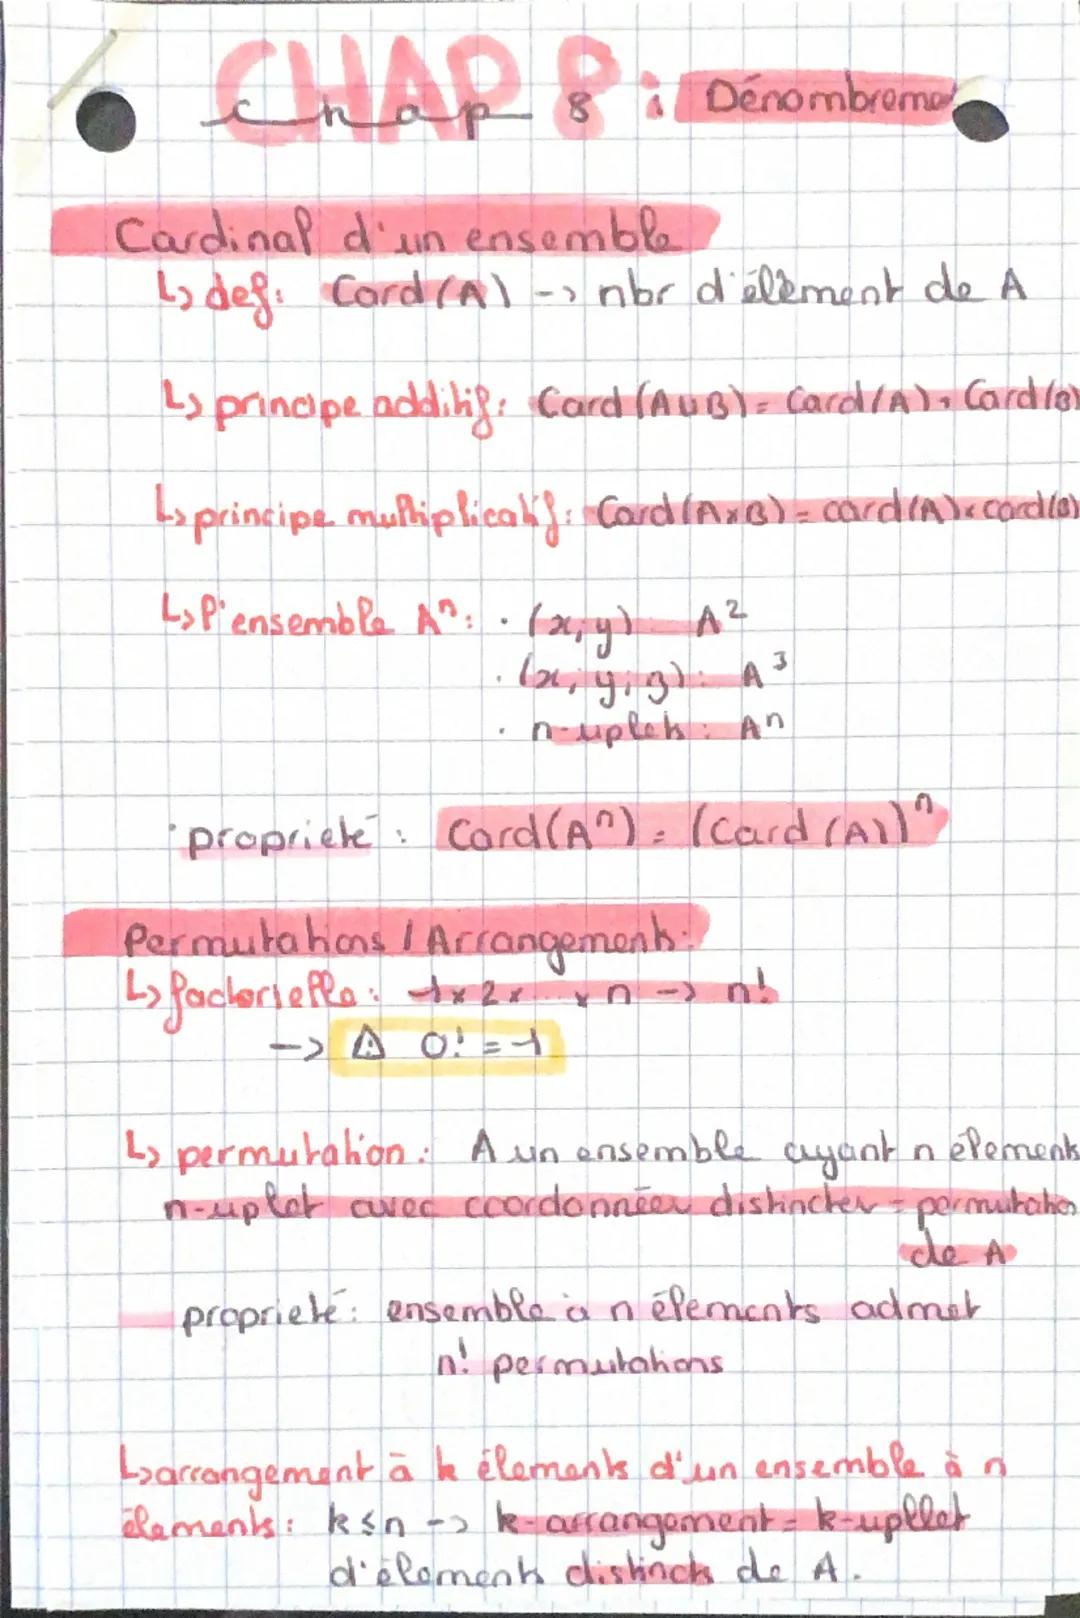 CHAP 8 :
Chap 8 : Dénombreme
Cardinal d'un ensemble
↳ def: Card(A) -> nbr d'élément de A
↳ principe additif: Card(A∪B) = Card(A) + Card(B)
↳ principe multiplicatif: Card(A×B) = card(A)×card(B)
↳ l'ensemble Aⁿ: · (x;y) A²
· (x; y; z): A³
· n-uplets : Aⁿ
· proprieté : Card(Aⁿ) = (Card (A))ⁿ
Permutations / Arrangements:
↳ factorielle: 1×2×...×n -> n!
-> ⚠ 0! = 1
↳ permutation: A un ensemble ayant n élements
n-uplet avec coordonnées distinctes = permutation
de A
proprieté: ensemble à n élements admet
n! permutations
↳ arrangement à k élements d'un ensemble à n
élements: k≤n -> k-arrangement = k-upllet
d'élements distincts de A.